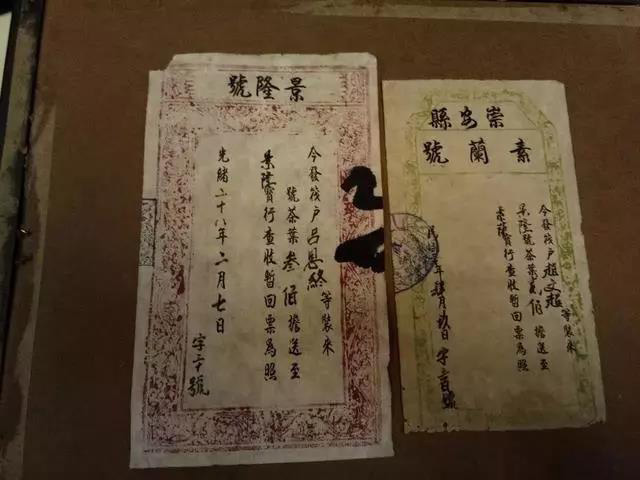 景隆號
今發筏戶呂恩終等裝來
號茶葉叁佰擔送至
景隆寶行查收暫回票為照
光緒二十八年二月七日
字二十號
崇安縣
素蘭號
今發筏戶趙文超等裝來
景隆號茶葉貳佰擔送至
景隆寶行查收暫回票為照
年肆月玖日字